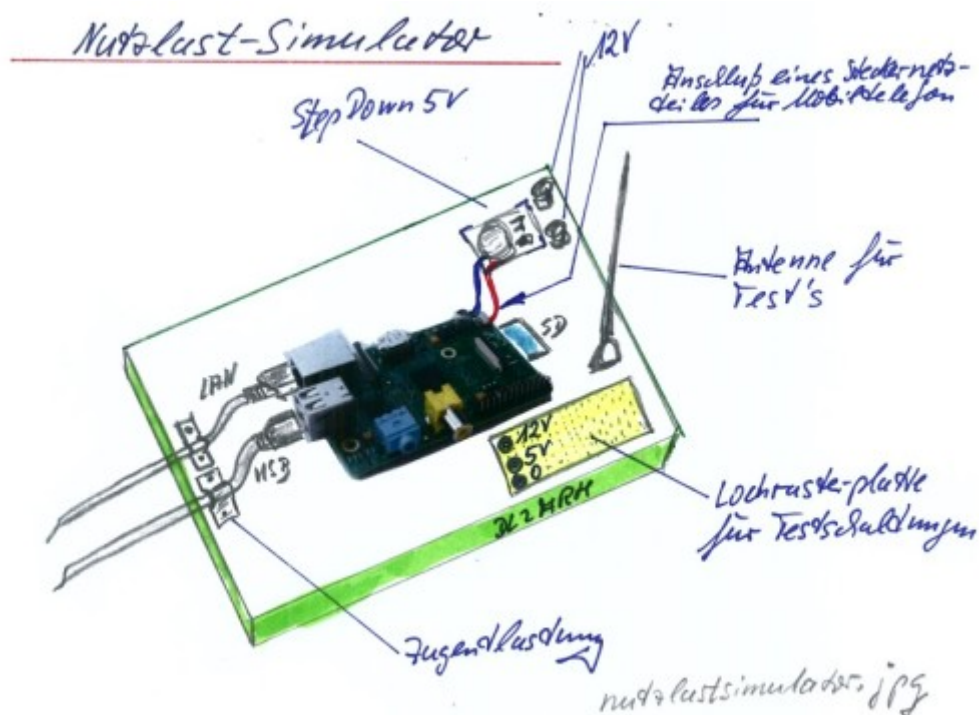 Nutzlast-Simulator
12V
StepDown 5V
Anschluß eines Steckernetz-
teiles für Mobiltelefon
Antenne für
Test's
SD
LAN
USB
12V
5V
0
DL2MRH
Lochrasterplatte
für Testschaltungen
Zugentlastung
nutzlastsimulator.jpg